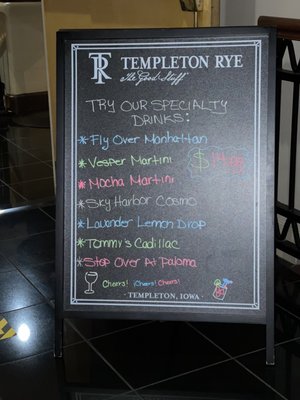 TR TEMPLETON RYE
The Good Stuff
TRY OUR SPECIALTY
DRINKS:
* Fly Over Manhattan
* Vesper Martini
* Mocha Martini
* Sky Harbor Cosmo
* Lavander Lemon Drop
* Tommy's Cadillac
* Stop Over At Paloma
Cheers! ¡Cheers! Cheers!
· TEMPLETON, IOWA ·